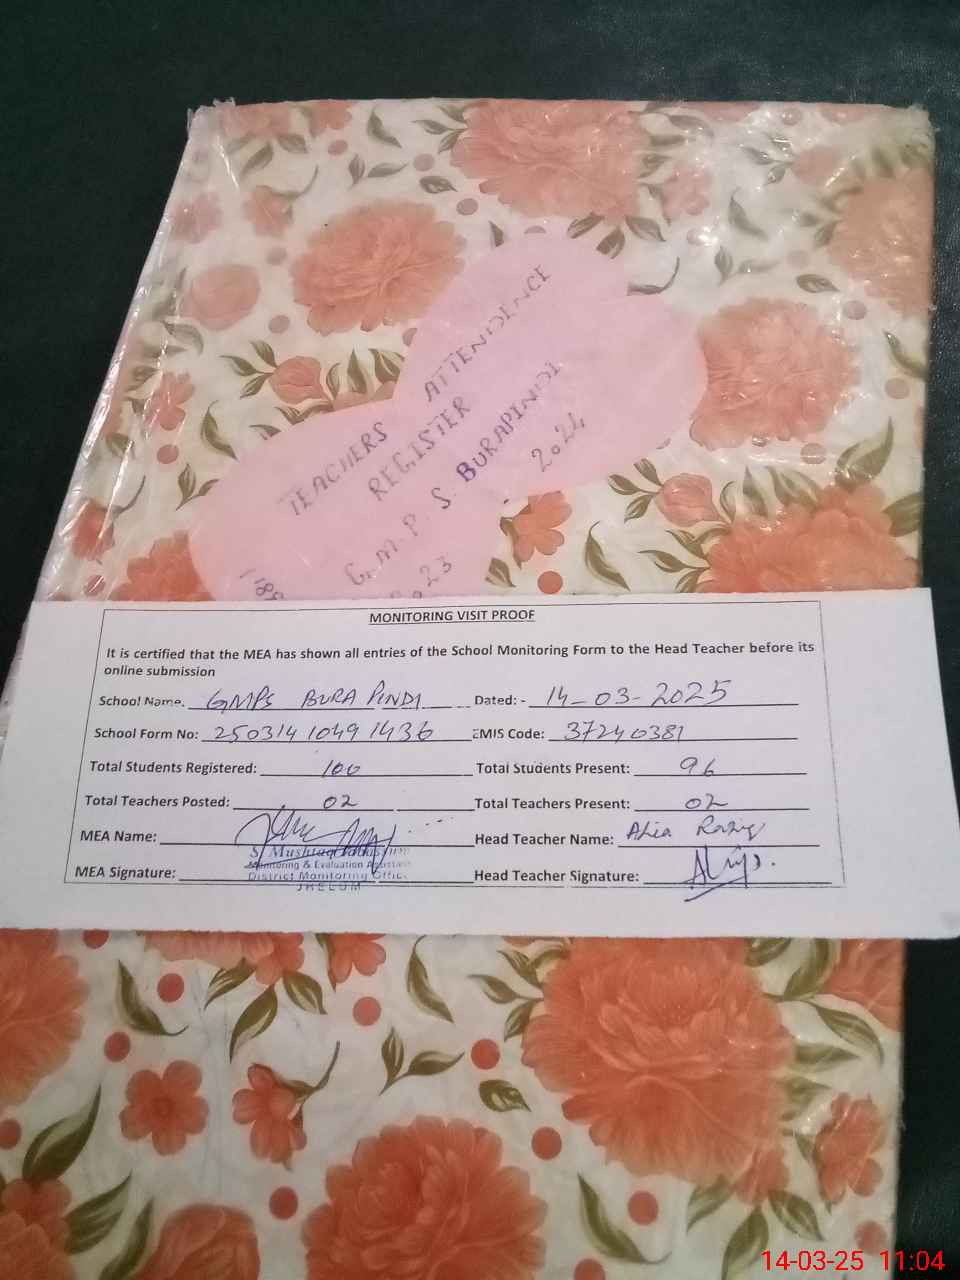 TEACHERS ATTENDENCE
REGISTER
G.M.P.S. BURAPINDI
23 2024
MONITORING VISIT PROOF
It is certified that the MEA has shown all entries of the School Monitoring Form to the Head Teacher before its
online submission
School Name. GMPS BURA PINDI Dated: - 14-03-2025
School Form No: 250314 1049 1436 EMIS Code: 37240381
Total Students Registered: 100 Total Students Present: 96
Total Teachers Posted: 02 Total Teachers Present: 02
MEA Name: Head Teacher Name:
S. Mushtaq
Monitoring & Evaluation Assistant
MEA Signature: District Monitoring Office Head Teacher Signature:
JHELUM
14-03-25 11:04